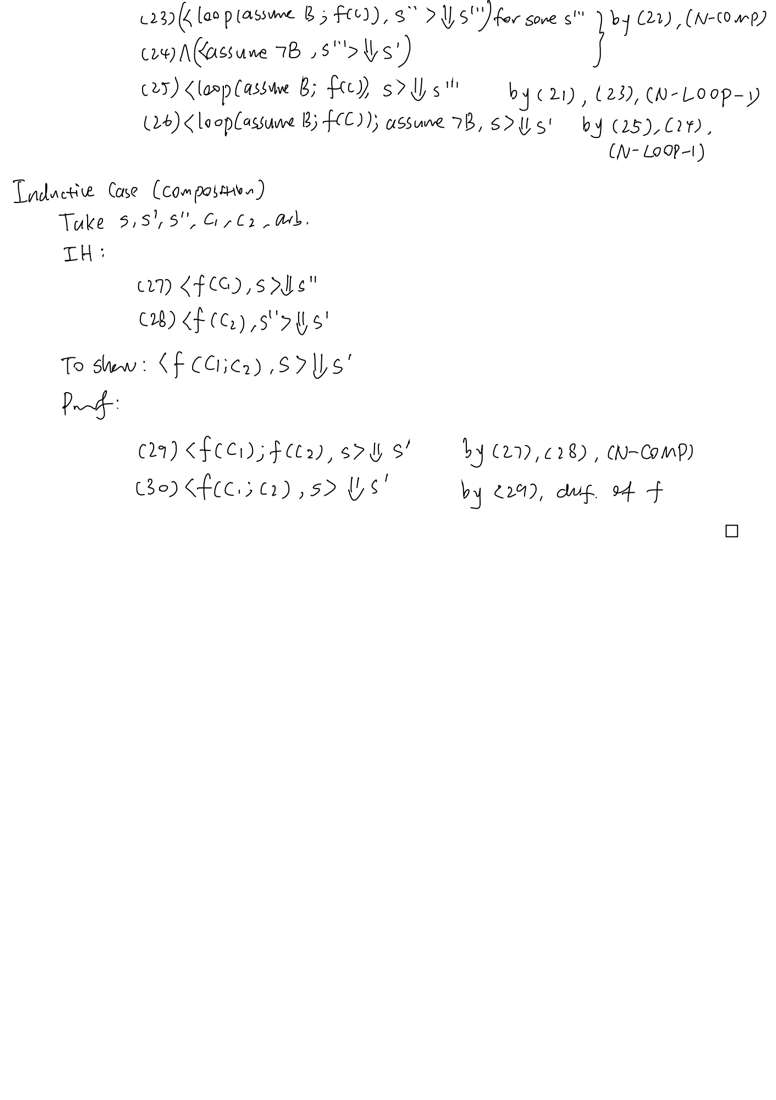 (23)(<loop(assume B; f(C)), s''>⇓s''') for some s''' } by (22), (N-COMP)
(24)∧(<assume ¬B, s'''>⇓s')
(25)<loop(assume B; f(C)), s>⇓s''' by (21), (23), (N-LOOP-1)
(26)<loop(assume B; f(C)); assume ¬B, s>⇓s' by (25), (24),
(N-LOOP-1)
Inductive Case (composition)
Take s, s', s'', C₁, C₂, arb.
IH:
(27) <f(C₁), s>⇓s''
(28) <f(C₂), s''>⇓s'
To show: <f(C₁;C₂), s>⇓s'
Proof:
(29) <f(C₁); f(C₂), s>⇓s' by (27), (28), (N-COMP)
(30) <f(C₁;C₂), s>⇓s' by (29), def. of f
□